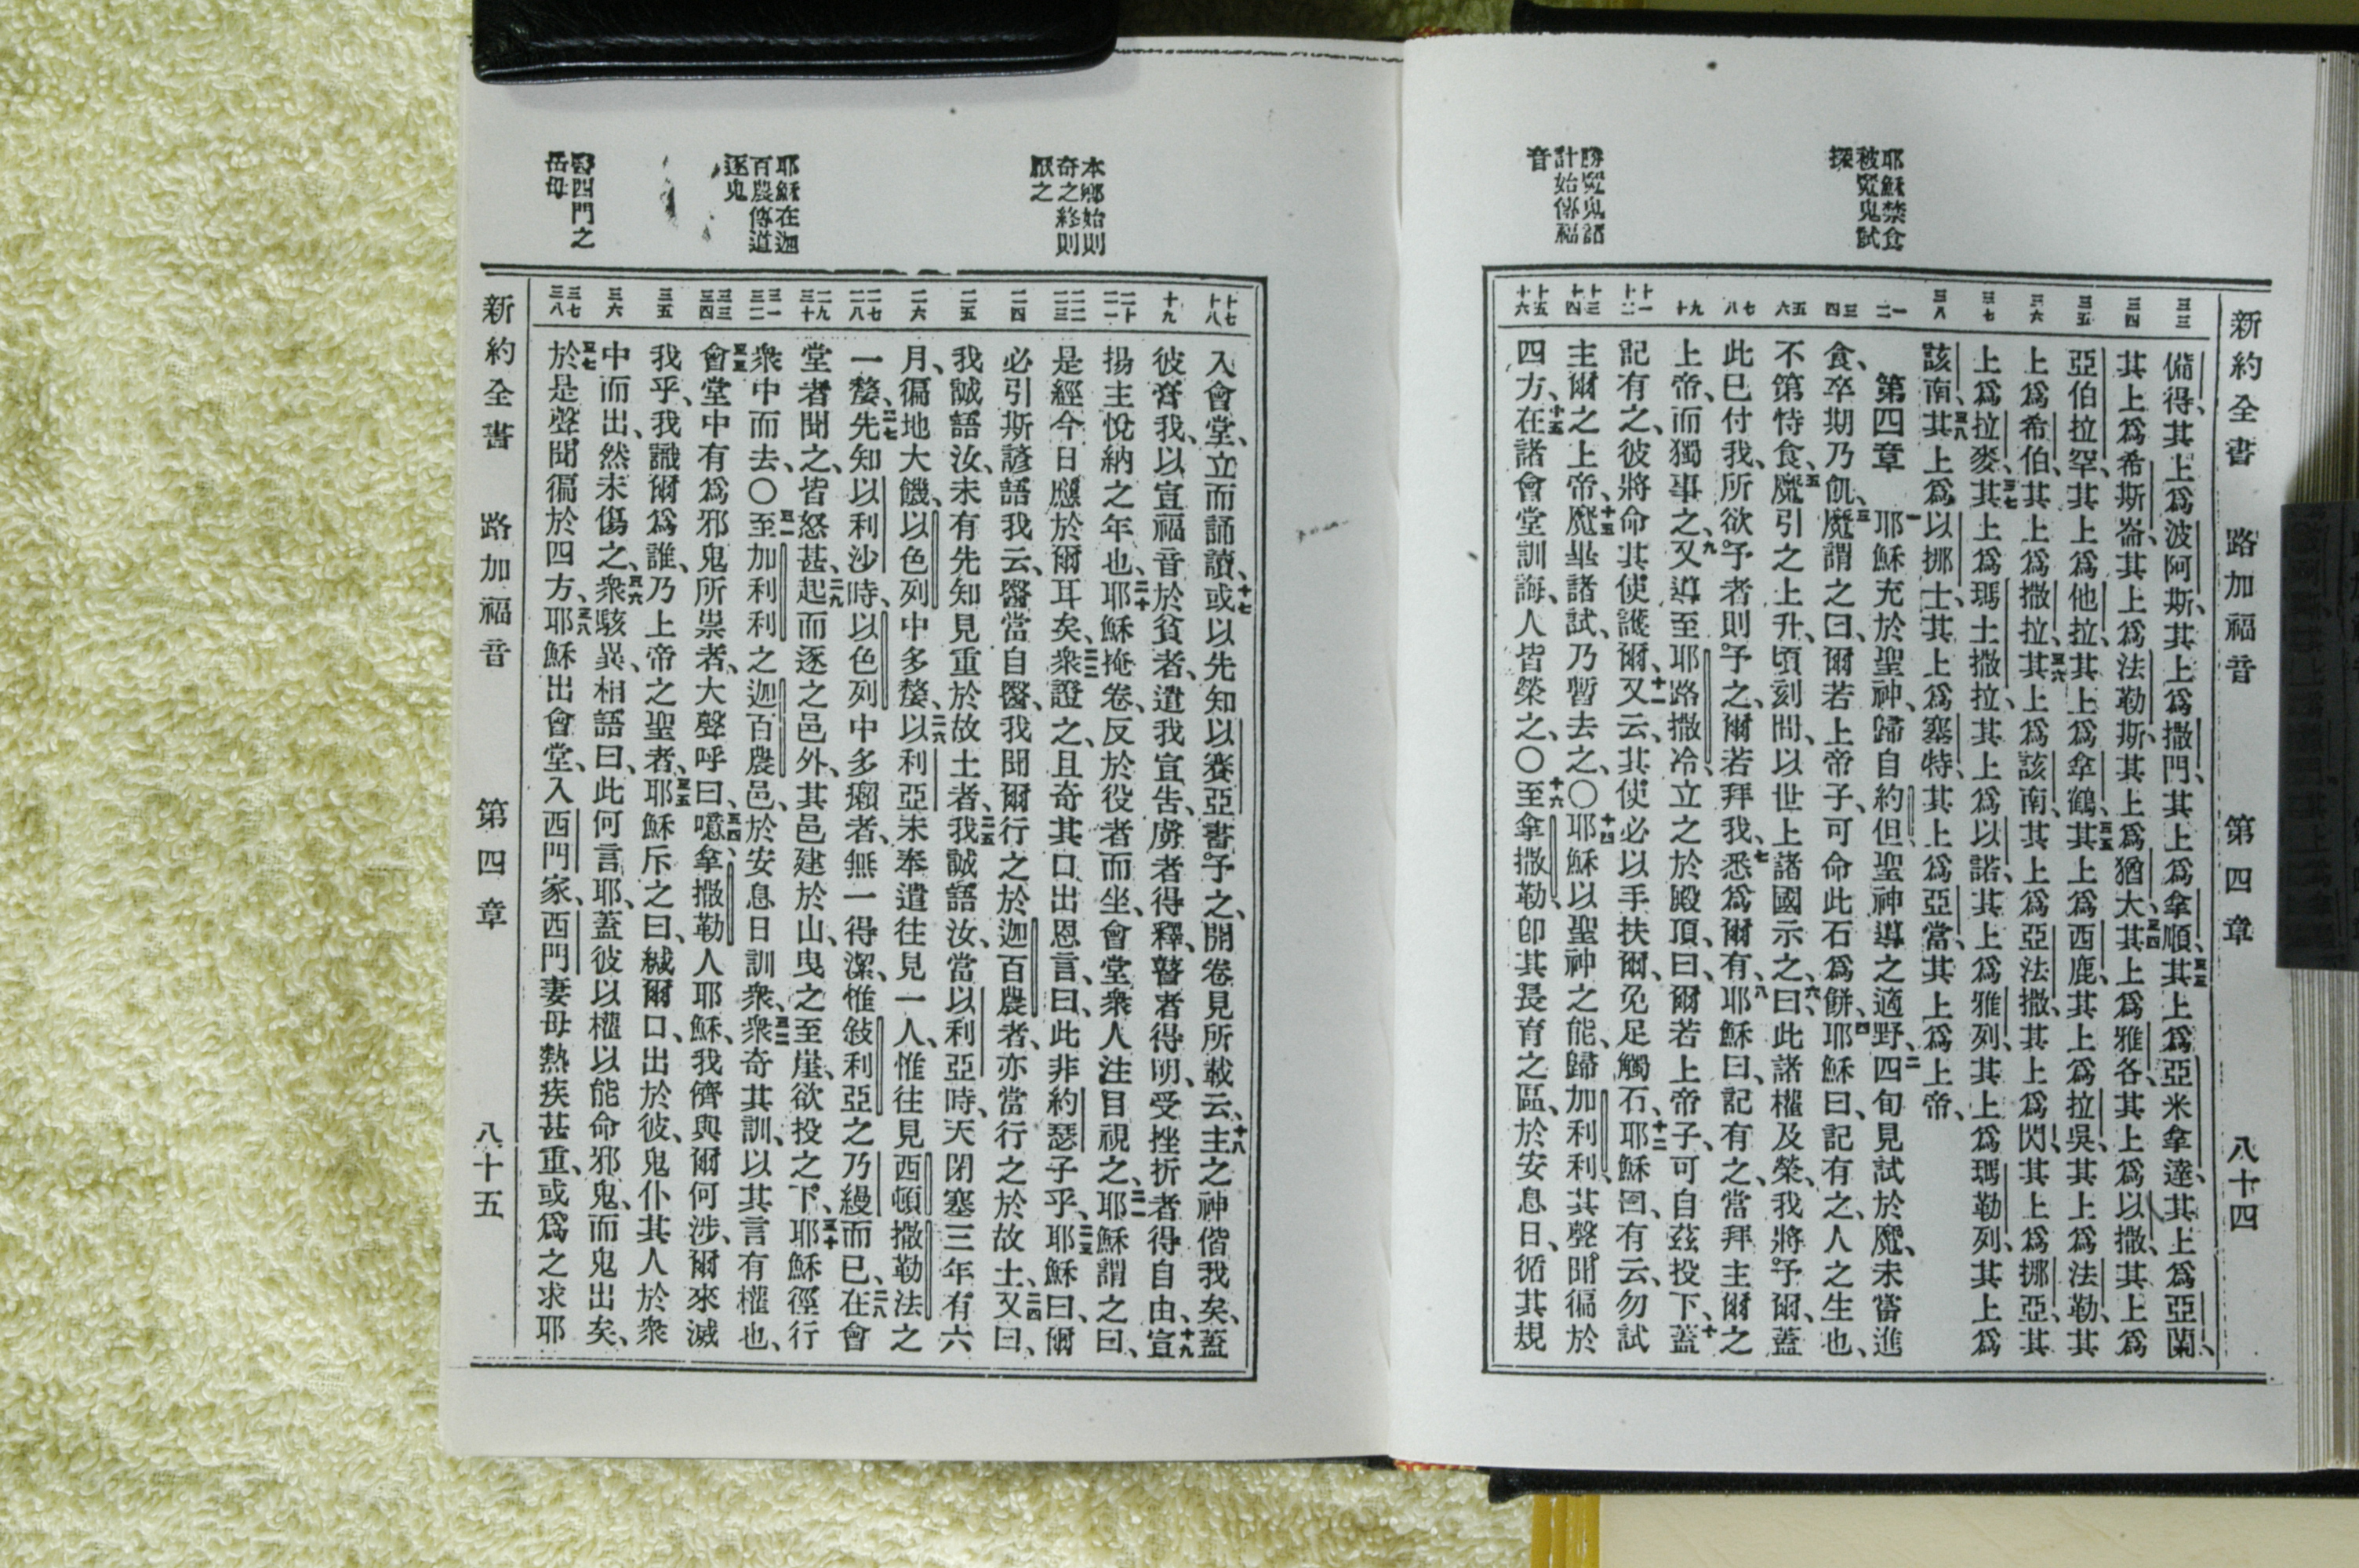 新約全書 路加福音 第四章 八十四
耶穌禁食
被魔鬼試
探
勝魔鬼詭
計始傳福
音
三三
三四
三五
三六
三七
三八
一二
三四
五六
七八
九十
十一十二
十三十四
十五十六
備得、其上爲波阿斯、其上爲撒門、其上爲拿順、三三其上爲亞米拿達、其上爲亞蘭、
其上爲希斯崙、其上爲法勒斯、其上爲猶大、三四其上爲雅各、其上爲以撒、其上爲
亞伯拉罕、其上爲他拉、其上爲拿鶴、三五其上爲西鹿、其上爲拉吳、其上爲法勒、其
上爲希伯、其上爲撒拉、三六其上爲該南、其上爲亞法撒、其上爲閃、其上爲挪亞、其
上爲拉麥、三七其上爲瑪土撒拉、其上爲以諾、其上爲雅列、其上爲瑪勒列、其上爲
該南、三八其上爲以挪士、其上爲塞特、其上爲亞當、其上爲上帝、
第四章 一耶穌充於聖神、歸自約但、聖神導之適野、二四旬見試於魔、未嘗進
食、卒期乃飢、三魔謂之曰、爾若上帝子、可命此石爲餅、四耶穌曰、記有之、人之生也、
不第恃食、五魔引之上升、頃刻間、以世上諸國示之、六曰、此諸權及榮、我將予爾、蓋
此已付我、所欲予者則予之、七爾若拜我、悉爲爾有、八耶穌曰、記有之、當拜主爾之
上帝、而獨事之、九又導至耶路撒冷、立之於殿頂、曰、爾若上帝子、可自茲投下、十蓋
記有之、彼將命其使護爾、十一又云、其使必以手扶爾、免足觸石、十二耶穌曰、有云、勿試
主爾之上帝、十三魔畢諸試、乃暫去之、〇十四耶穌以聖神之能、歸加利利、其聲聞徧於
四方、十五在諸會堂訓誨、人皆榮之、〇十六至拿撒勒、卽其長育之區、於安息日、循其規
本鄉始則
奇之終則
厭之
耶穌在迦
百農傳道
逐鬼
醫西門之
岳母
十七十八
十九
二十二一
二二二三
二四
二五
二六
二七二八
二九三十
三一三二
三三三四
三五
三六
三七三八
入會堂、立而誦讀、十七或以先知以賽亞書予之、開卷見所載云、十八主之神偕我矣、蓋
彼膏我、以宣福音於貧者、遣我宣告、虜者得釋、瞽者得明、受挫折者得自由、十九宣
揚主悅納之年也、二十耶穌掩卷、反於役者而坐、會堂衆人注目視之、二一耶穌謂之曰、
是經今日應於爾耳矣、二二衆證之、且奇其口出恩言、曰、此非約瑟子乎、二三耶穌曰、爾
必引斯諺語我云、醫當自醫、我聞爾行之於迦百農者、亦當行之於故土、二四又曰、
我誠語汝、未有先知見重於故土者、二五我誠語汝、當以利亞時、天閉塞三年有六
月、徧地大饑、以色列中多嫠、二六以利亞未奉遣往見一人、惟往見西頓撒勒法之
一嫠、二七先知以利沙時、以色列中多癩者、無一得潔、惟敍利亞之乃縵而已、二八在會
堂者聞之、皆怒甚、二九起而逐之邑外、其邑建於山、曳之至崖、欲投之下、三十耶穌徑行
衆中而去、〇三一至加利利之迦百農邑、於安息日訓衆、三二衆奇其訓、以其言有權也、
三三會堂中有爲邪鬼所祟者、大聲呼曰、三四噫、拿撒勒人耶穌、我儕與爾何涉、爾來滅
我乎、我識爾爲誰、乃上帝之聖者、三五耶穌斥之曰、緘爾口、出於彼、鬼仆其人於衆
中而出、然未傷之、三六衆駭異、相語曰、此何言耶、蓋彼以權以能命邪鬼、而鬼出矣、
三七於是聲聞徧於四方、三八耶穌出會堂、入西門家、西門妻母熱疾甚重、或爲之求耶
新約全書 路加福音 第四章 八十五